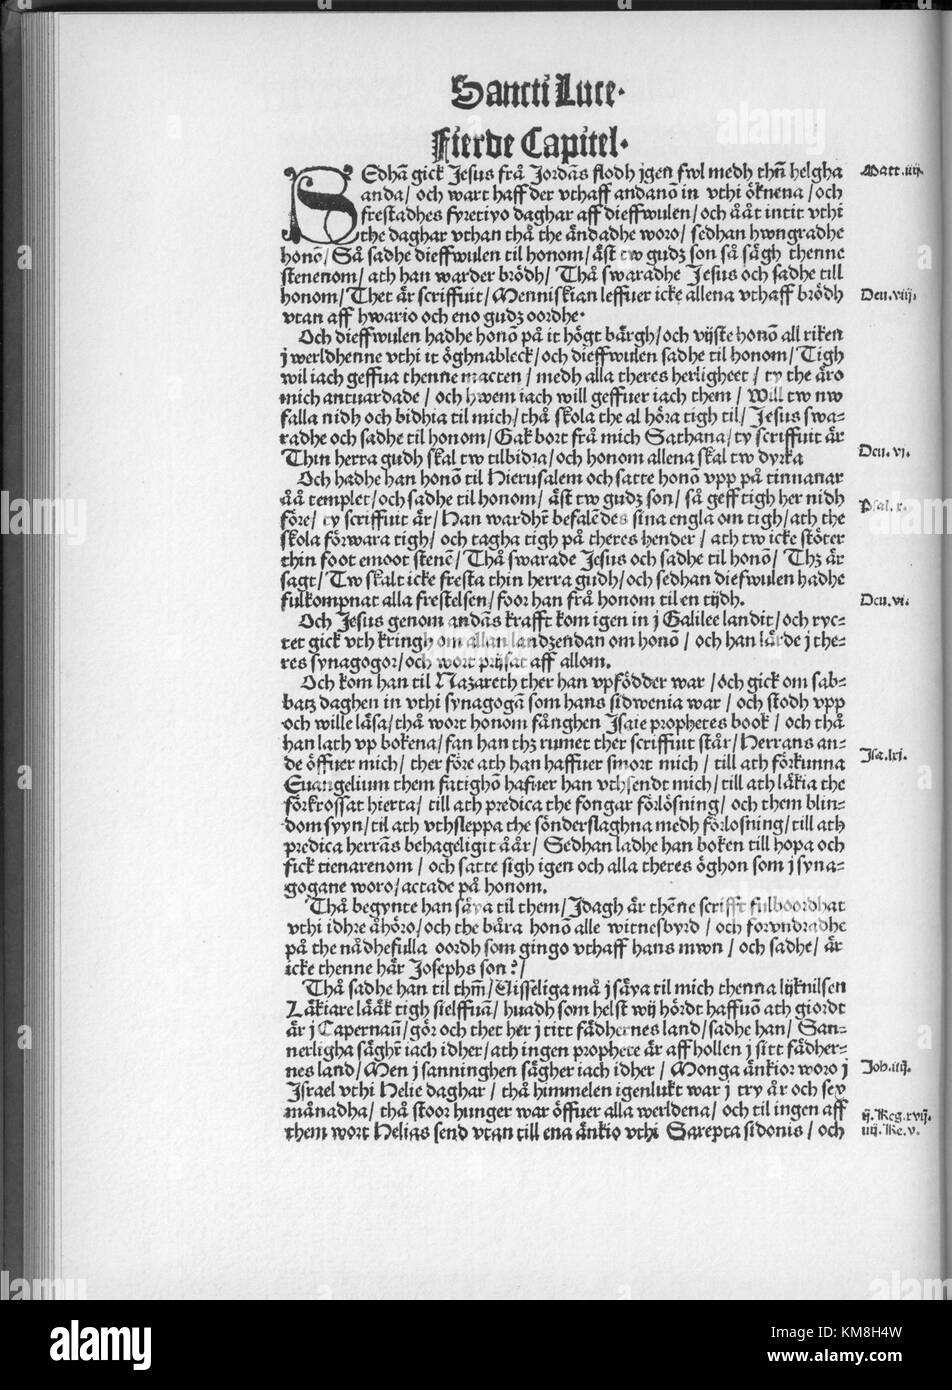 Sancti Luce.
Fierde Capitel.
SEdhā gick Jesus frå Jordās flodh jgen fwl medh thn̄ helgha Matt.iiij.
anda/ och wart haff der vthaff andanō in vthi öknena/ och
frestadhes fyretiyo daghar aff dieffwulen/ och ååt intit vthi
the daghar vthan thå the ändadhe woro/ sedhan hwngradhe
honō/ Så sadhe dieffwulen til honom/ äst tw gudz son så sägh thenne
stenenom/ ath han warder brödh/ Thå swaradhe Jesus och sadhe till
honom/ Thet är scriffuit/ Menniskian leffuer icke allena vthaff brödh Deu.viij.
vtan aff hwario och eno gudz oordhe.
Och dieffwulen hadhe honō på it högt bärgh/ och vijste honō all riken
j werldhenne vthi it öghnableck/ och dieffwulen sadhe til honom/ Tigh
wil iach geffua thenne macten/ medh alla theres herligheet/ ty the äro
mich antuardade/ och hwem iach will geffuer iach them/ Will tw nw
falla nidh och bidhia til mich/ thå skola the al höra tigh til/ Jesus swa-
radhe och sadhe til honom/ Gak bort frå mich Sathana/ ty scriffuit är
Thin herra gudh skal tw tilbidia/ och honom allena skal tw dyrka Deu.vj.
Och hadhe han honō til Hierusalem och satte honō vpp på tinnanar
åå templet/ och sadhe til honom/ äst tw gudz son/ så geff tigh her nidh
före/ ty scriffuit är/ Han wardhr̄ befalēdes sina engla om tigh/ ath the Psal.x.
skola förwara tigh/ och tagha tigh på theres hender/ ath tw icke stöter
thin foot emoot stenē/ Thå swarade Jesus och sadhe til honō/ Thz är
sagt/ Tw skalt icke fresta thin herra gudh/ och sedhan diefwulen hadhe
fulkompnat alla frestelsen/ foor han frå honom til en tijdh. Deu.vi.
Och Jesus genom andās krafft kom igen in j Galilee landit/ och ryc-
tet gick vth kringh om allan landzendan om honō/ och han lärde j the-
res synagogor/ och wort prijsat aff allom.
Och kom han til Nazareth ther han vpfödder war/ och gick om sab-
batz daghen in vthi synagogā som hans sidwenia war/ och stodh vpp
och wille läsa/ thå wort honom fånghen Isaie prophetes book/ och thå
han lath vp bokena/ fan han thz rumet ther scriffuit står/ Herrans an-
de öffuer mich/ ther före ath han haffuer smort mich/ till ath förkunna Isa.lxj.
Euangelium them fatighō hafuer han vthsendt mich/ till ath läkia the
förkrossat hierta/ till ath predica the fongar förlösning/ och them blin-
dom syyn/ til ath vthsleppa the sönderslaghna medh förlosning/ till ath
predica herrās behageligit åår/ Sedhan ladhe han boken till hopa och
fick tienarenom/ och satte sigh igen och alla theres öghon som j syna-
gogane woro/ actade på honom.
Thå begynte han säya til them/ Idagh är thēne scrifft fulboordhat
vthi idhre åhöro/ och the båra honō alle witnesbyrd/ och forvndradhe
på the nådhefulla oordh som gingo vthaff hans mwn/ och sadhe/ är
icke thenne här Josephs son?/
Thå sadhe han til thm̄/ Visseliga må j säya til mich thenna lijknilsen
Läkiare lääk tigh sielffuā/ huadh som helst wij hördt haffuō ath giordt
är j Capernaū/ gör och thet her j titt fädhernes land/ sadhe han/ San-
nerligha säghr̄ iach idher/ ath ingen prophete är aff hollen j sitt fädher-
nes land/ Men j sanninghen sägher iach idher/ Monga änkior woro j Joh.iiij.
Israel vthi Helie daghar/ thå himmelen igenlukt war j try år och sex
månadha/ thå stoor hunger war öffuer alla werldena/ och til ingen aff iij.Reg.xvij.
them wort Helias send vtan till ena änkio vthi Sarepta sidonis/ och iiij.Re.v.
alamy
Image ID: KM8H4W
www.alamy.com